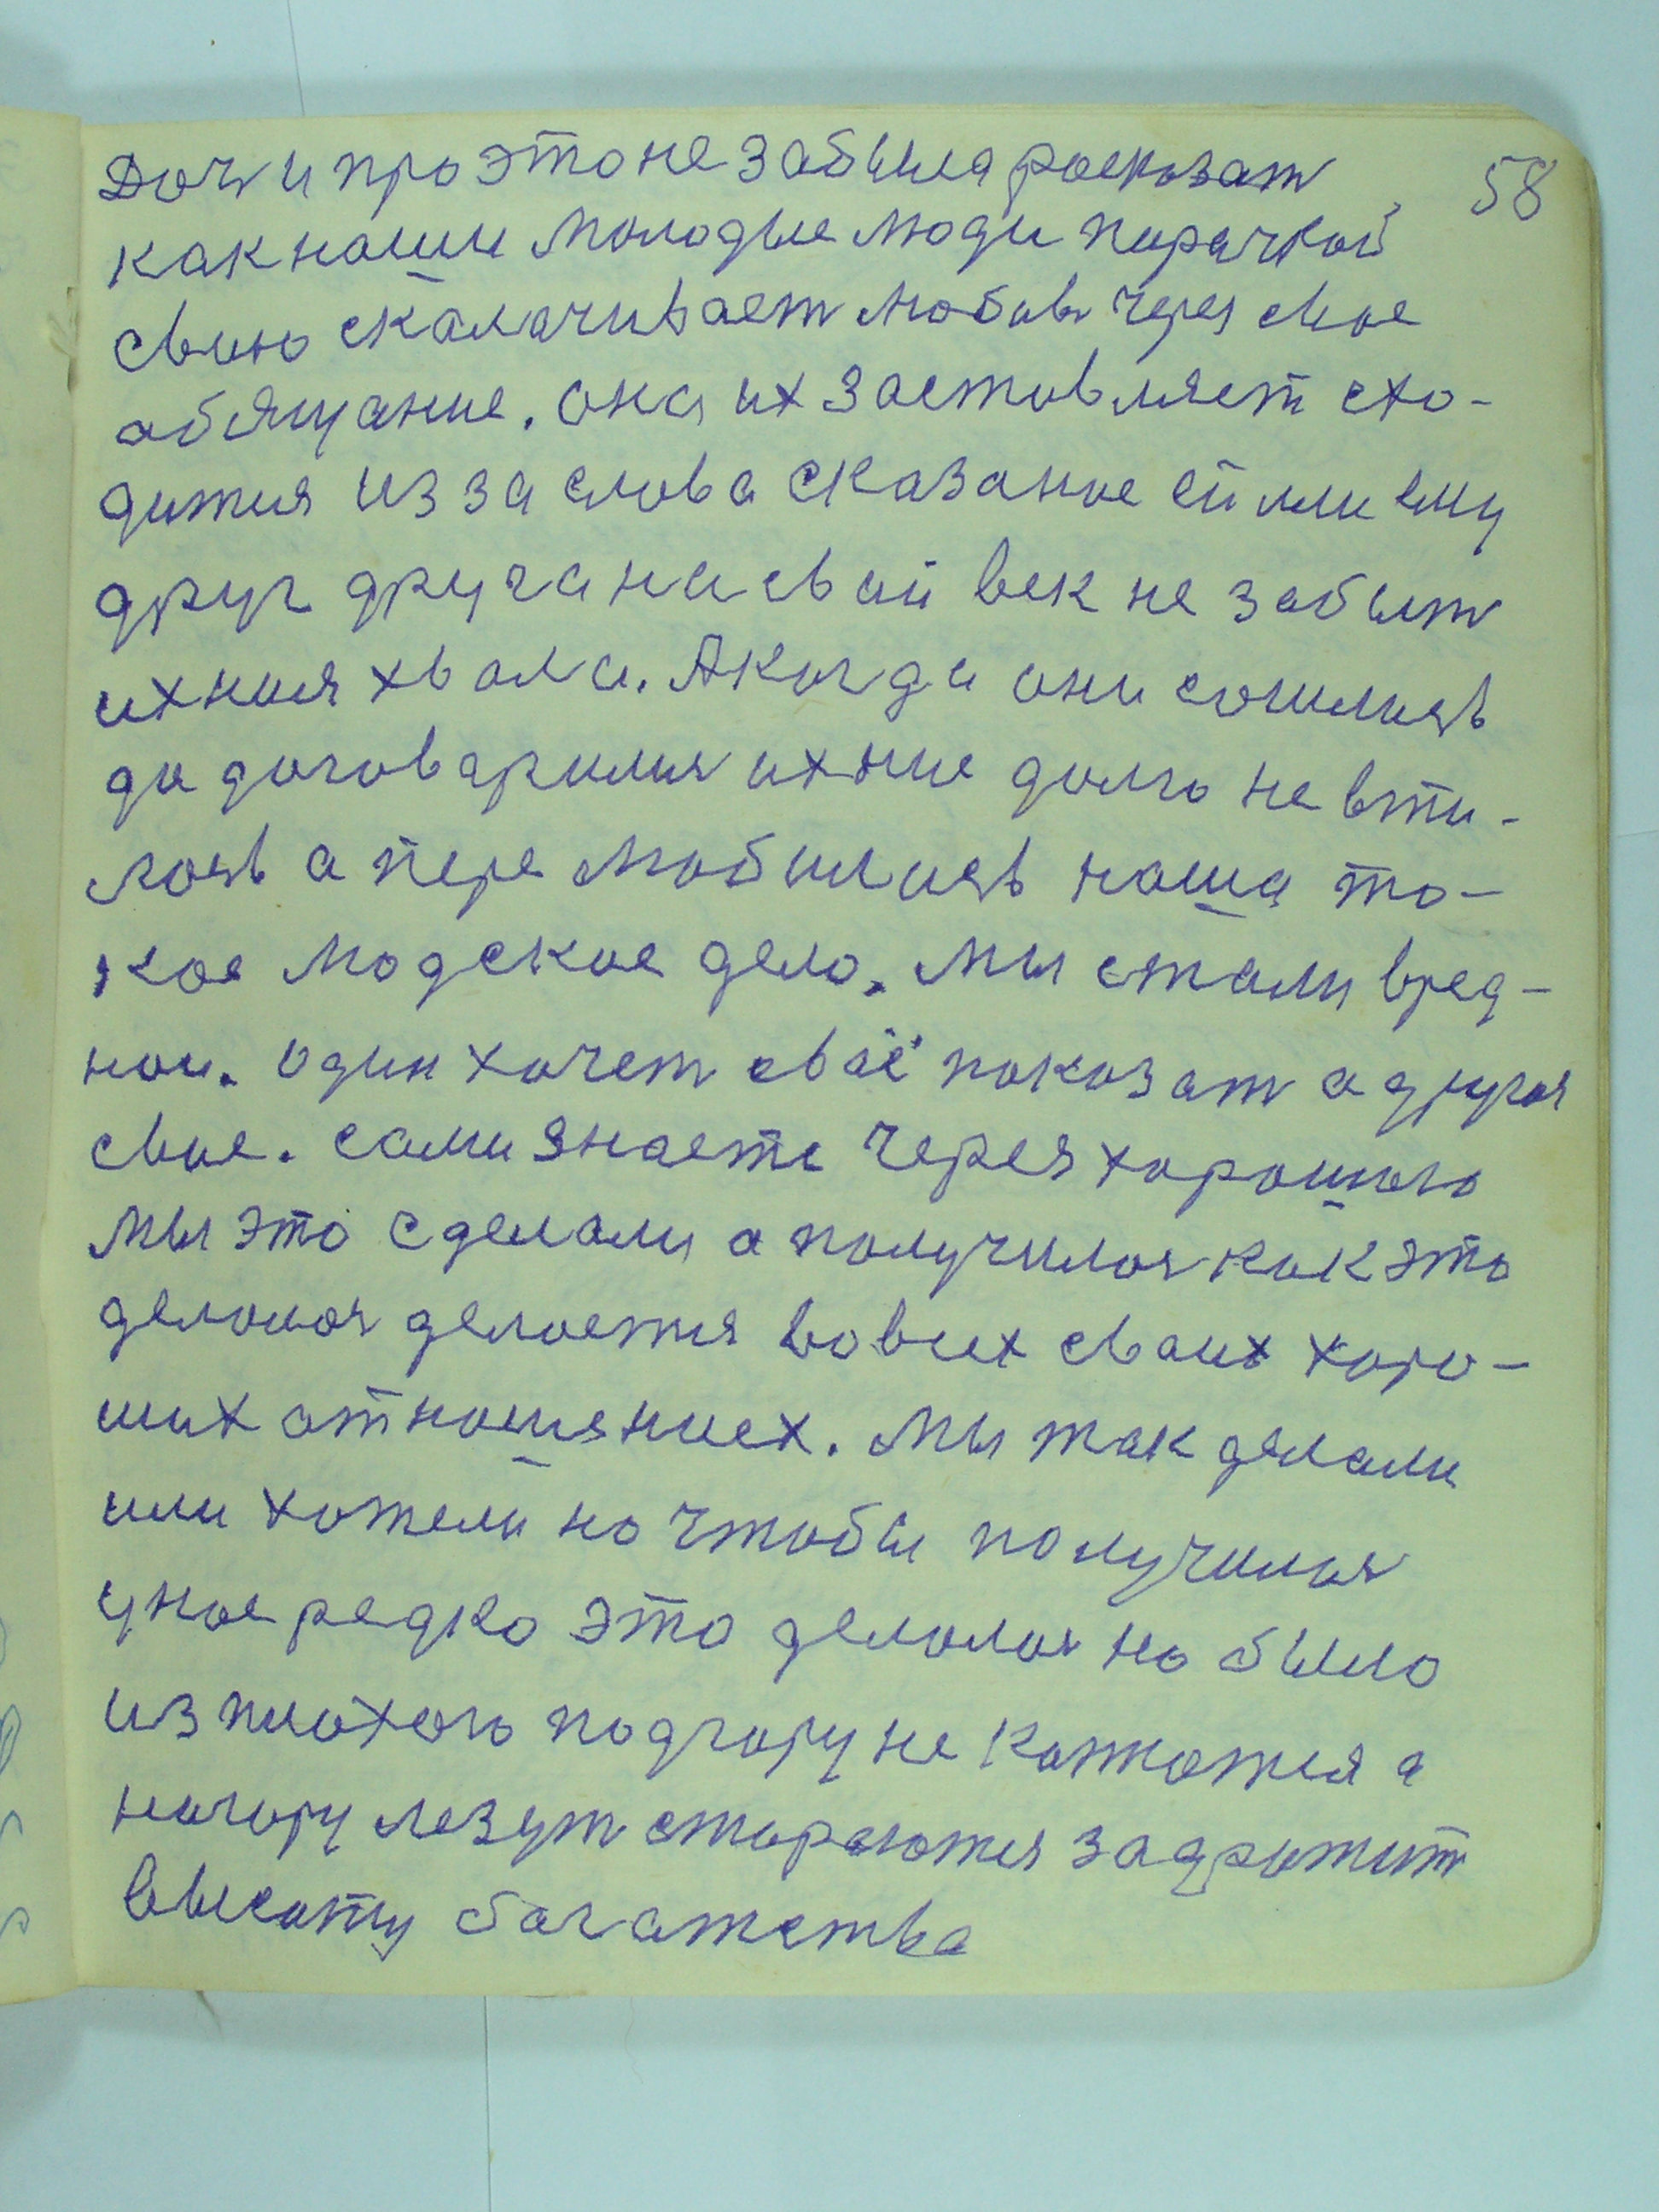 Дочь и про это не забыла расказат 58
как наши молодые люди парачкой
свою сколачивает любовь через свое
обящание. она их заставляет схо-
дится из за слова сказаное ей или ему
друг друга на свой век не забыт
ихния хвала. А когда они сошлись
да договарился ихние долго не вти-
лось а перелюбились наша та-
кое людское дело. мы стали вред-
нои. один хочет своё показат а другоя
свое. сами знаете через хорошого
мы это сделали а получилоя как это
делолоя делоется во всих своих харо-
ших отношяниех. мы так делали
или хотели но чтобы получилоя
у нас редко это делолоя но было
из плохого подгору не кототся а
нагору лезут стораются задражит
высоту богатства